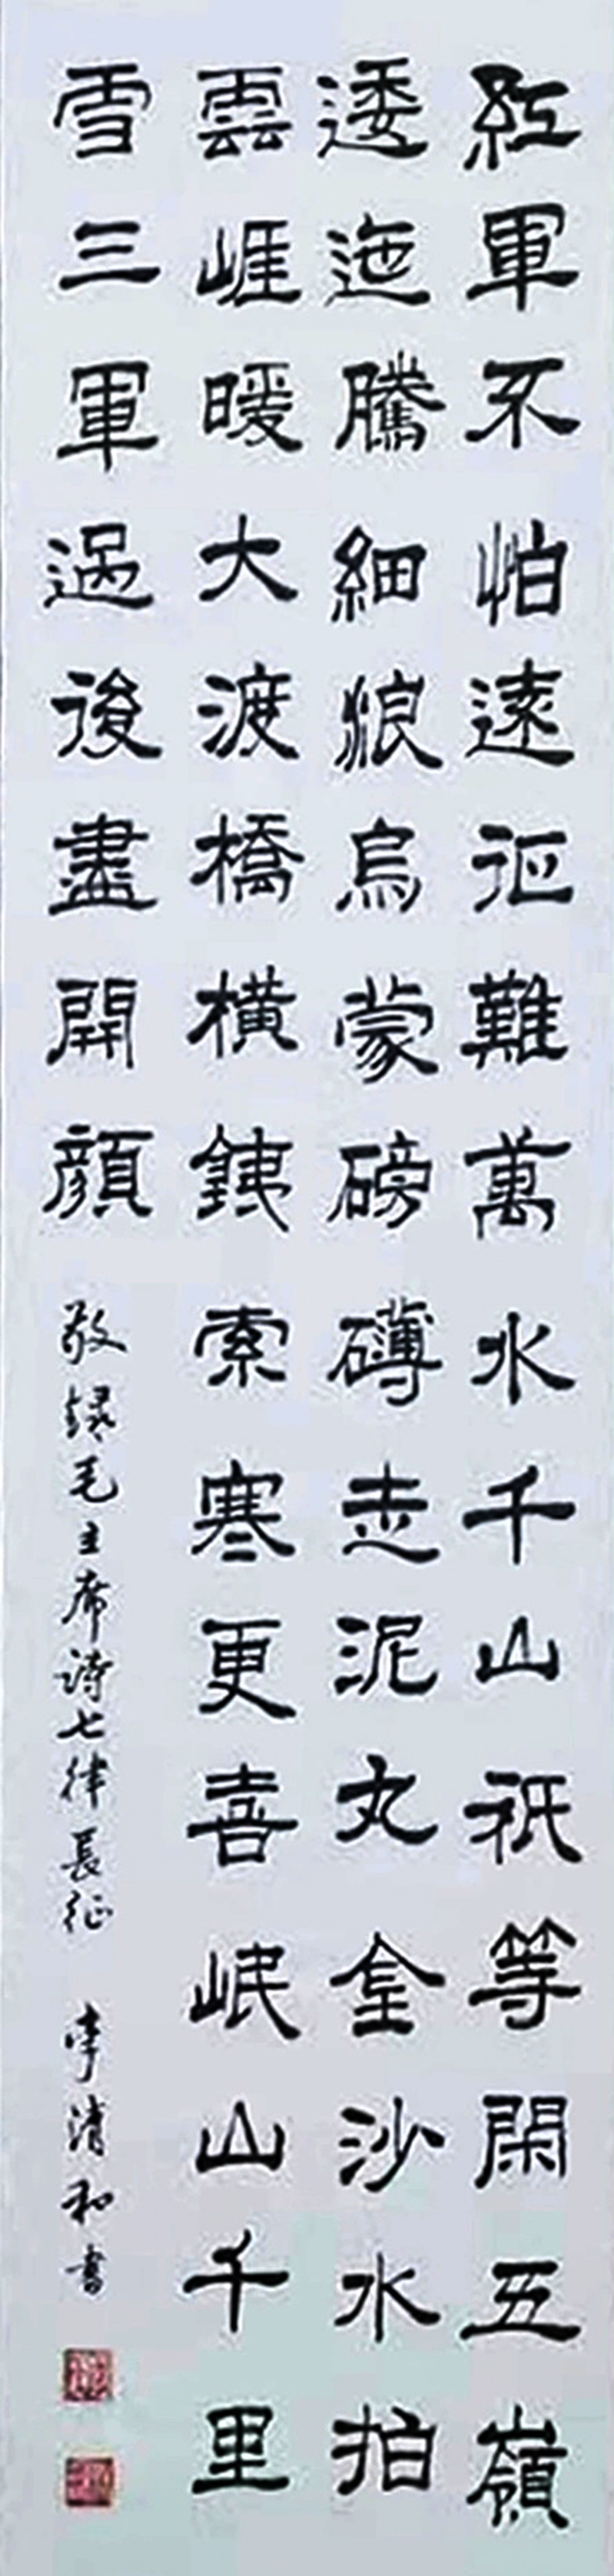 紅軍不怕遠征難萬水千山祇等閑五嶺
逶迤騰細浪烏蒙磅礴走泥丸金沙水拍
雲崖暖大渡橋橫銕索寒更喜岷山千里
雪三軍過後盡開顏
敬錄毛主席詩七律長征 李清和書